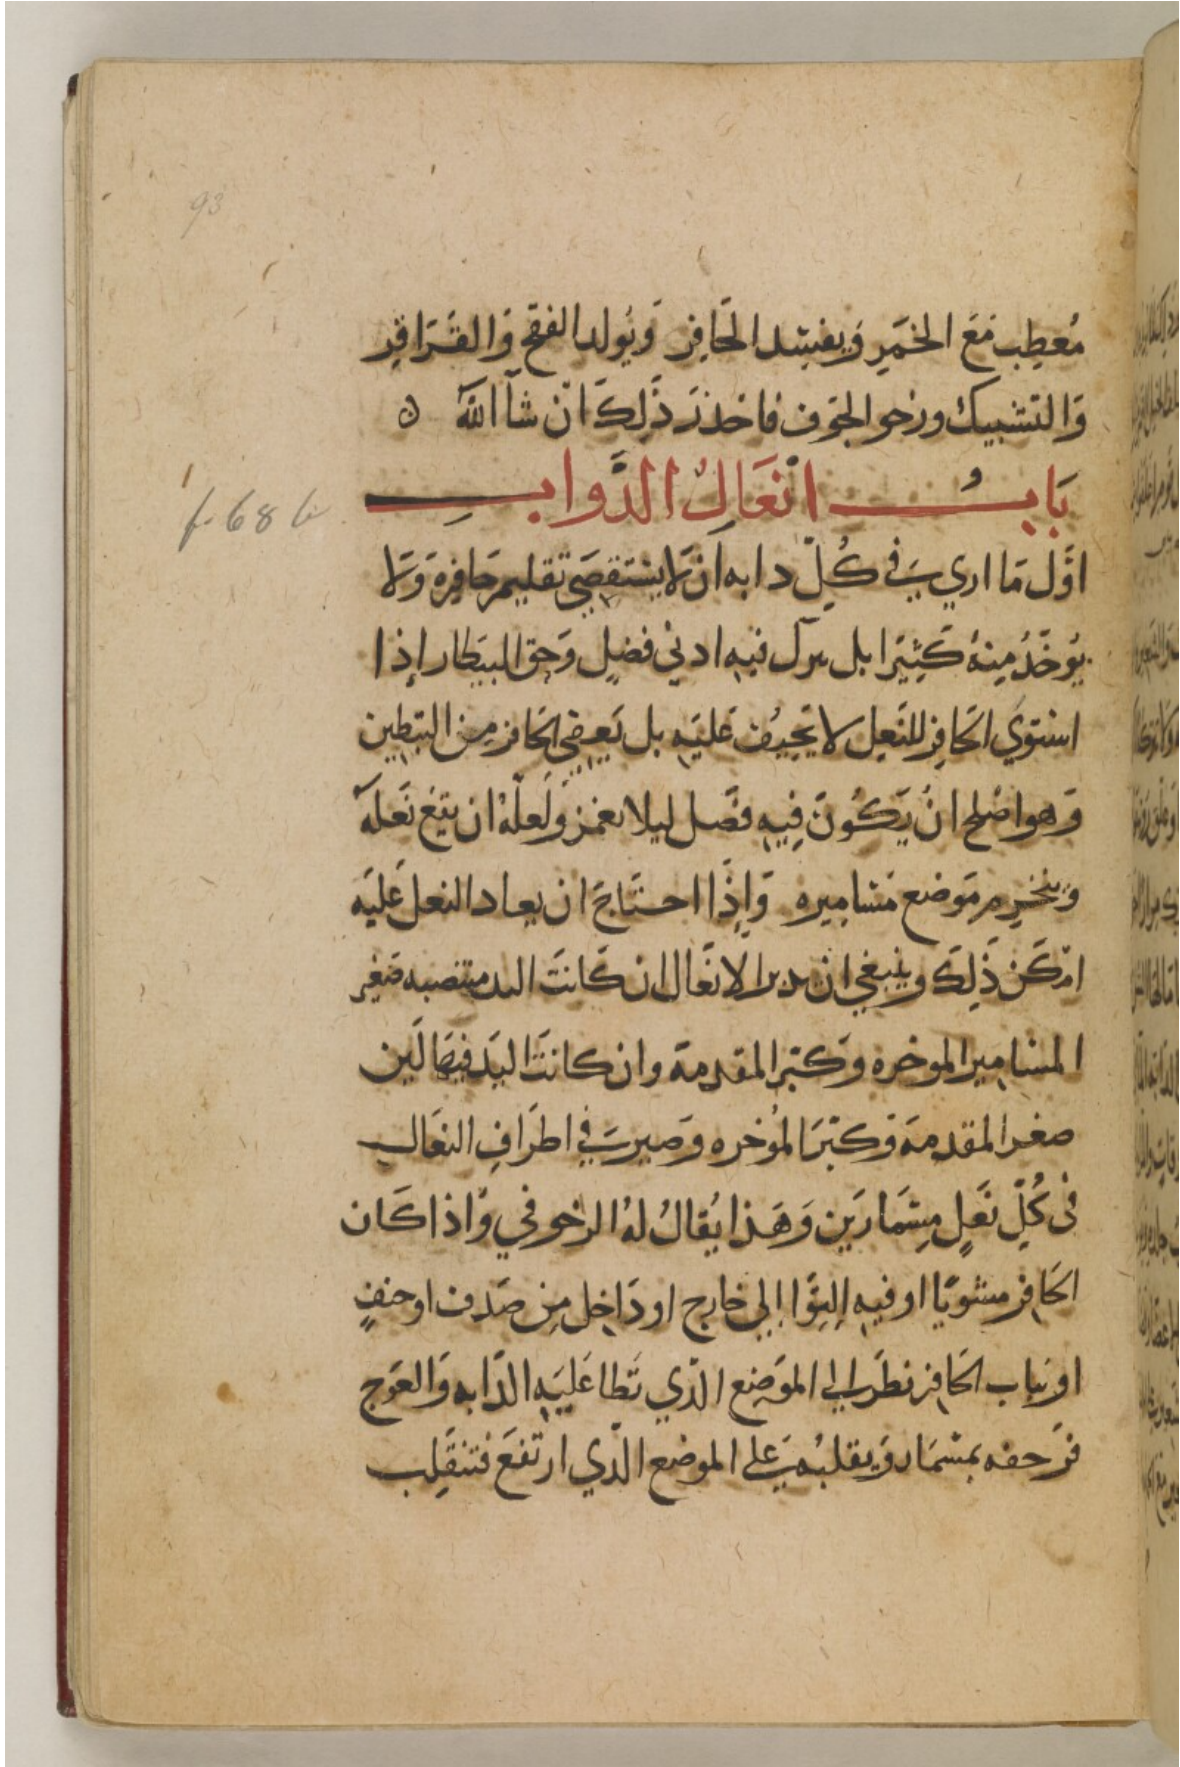 93
مُعطِب مَعَ الخمَير وَيفسِد الحَافِر وَيُولد الفقح وَالقَرَاقِر
وَالتشبيك ورخو الجَوف فاحذر ذَلِكَ ان شآ اللَّه ه
بَابُ انْعَالِ الدَّوابِ
f. 68 b
اوَّل مَا اري في كُلِّ دابه ان لا يستقصَي تقليم حَافِرِه وَلا
يوخَذُ مِنهُ كَثِيَرا بل يترك فيه ادني فضلٍ وَحق البيَطار إذا
استوَي الحَافِر للنَعِل لا يَحِيُف عَليَه بل يَعفي الحَافر مِن التبَطين
وَهوا صْلح انْ يَكُونَ فِيهِ فضَل ليلا يغمز وَلَعلْهُ ان يقع نَعله
وَينخرم مَوضع مَسَامِيره وَإِذَا احتَاجَ ان يعاد النعل عَليَه
امْكَن ذَلِكَ وينبغي ان يدبر الانَعال ان كَانتَ اليد منتصبه صَغر
المسَامِير الموخره وَكبّر المقدمة وان كانتَ اليَد فيهَا لَين
صغر المقدمَة وَكبّرَ المُوخره وَصير في اطرَافِ النعَال
في كُلِّ نَعَلٍ مِسْمَارَين وَهَذا يُقالُ لهُ الرخو في وَاذا كَان
الحَافر مستوَيًا او فيهِ اِلتِوَا اِلي خارج او دَاخِل مِن صَدف او حنفٍ
او نباب الحَافر نظَر الي الموَضِع الذّي تَطا عَليَهِ الدَّابه وَالعَوج
فَرَحفه بمسْمَار وَيقلبُه عَلي الموضع الّذي ارتفَعَ فتنقَلِب